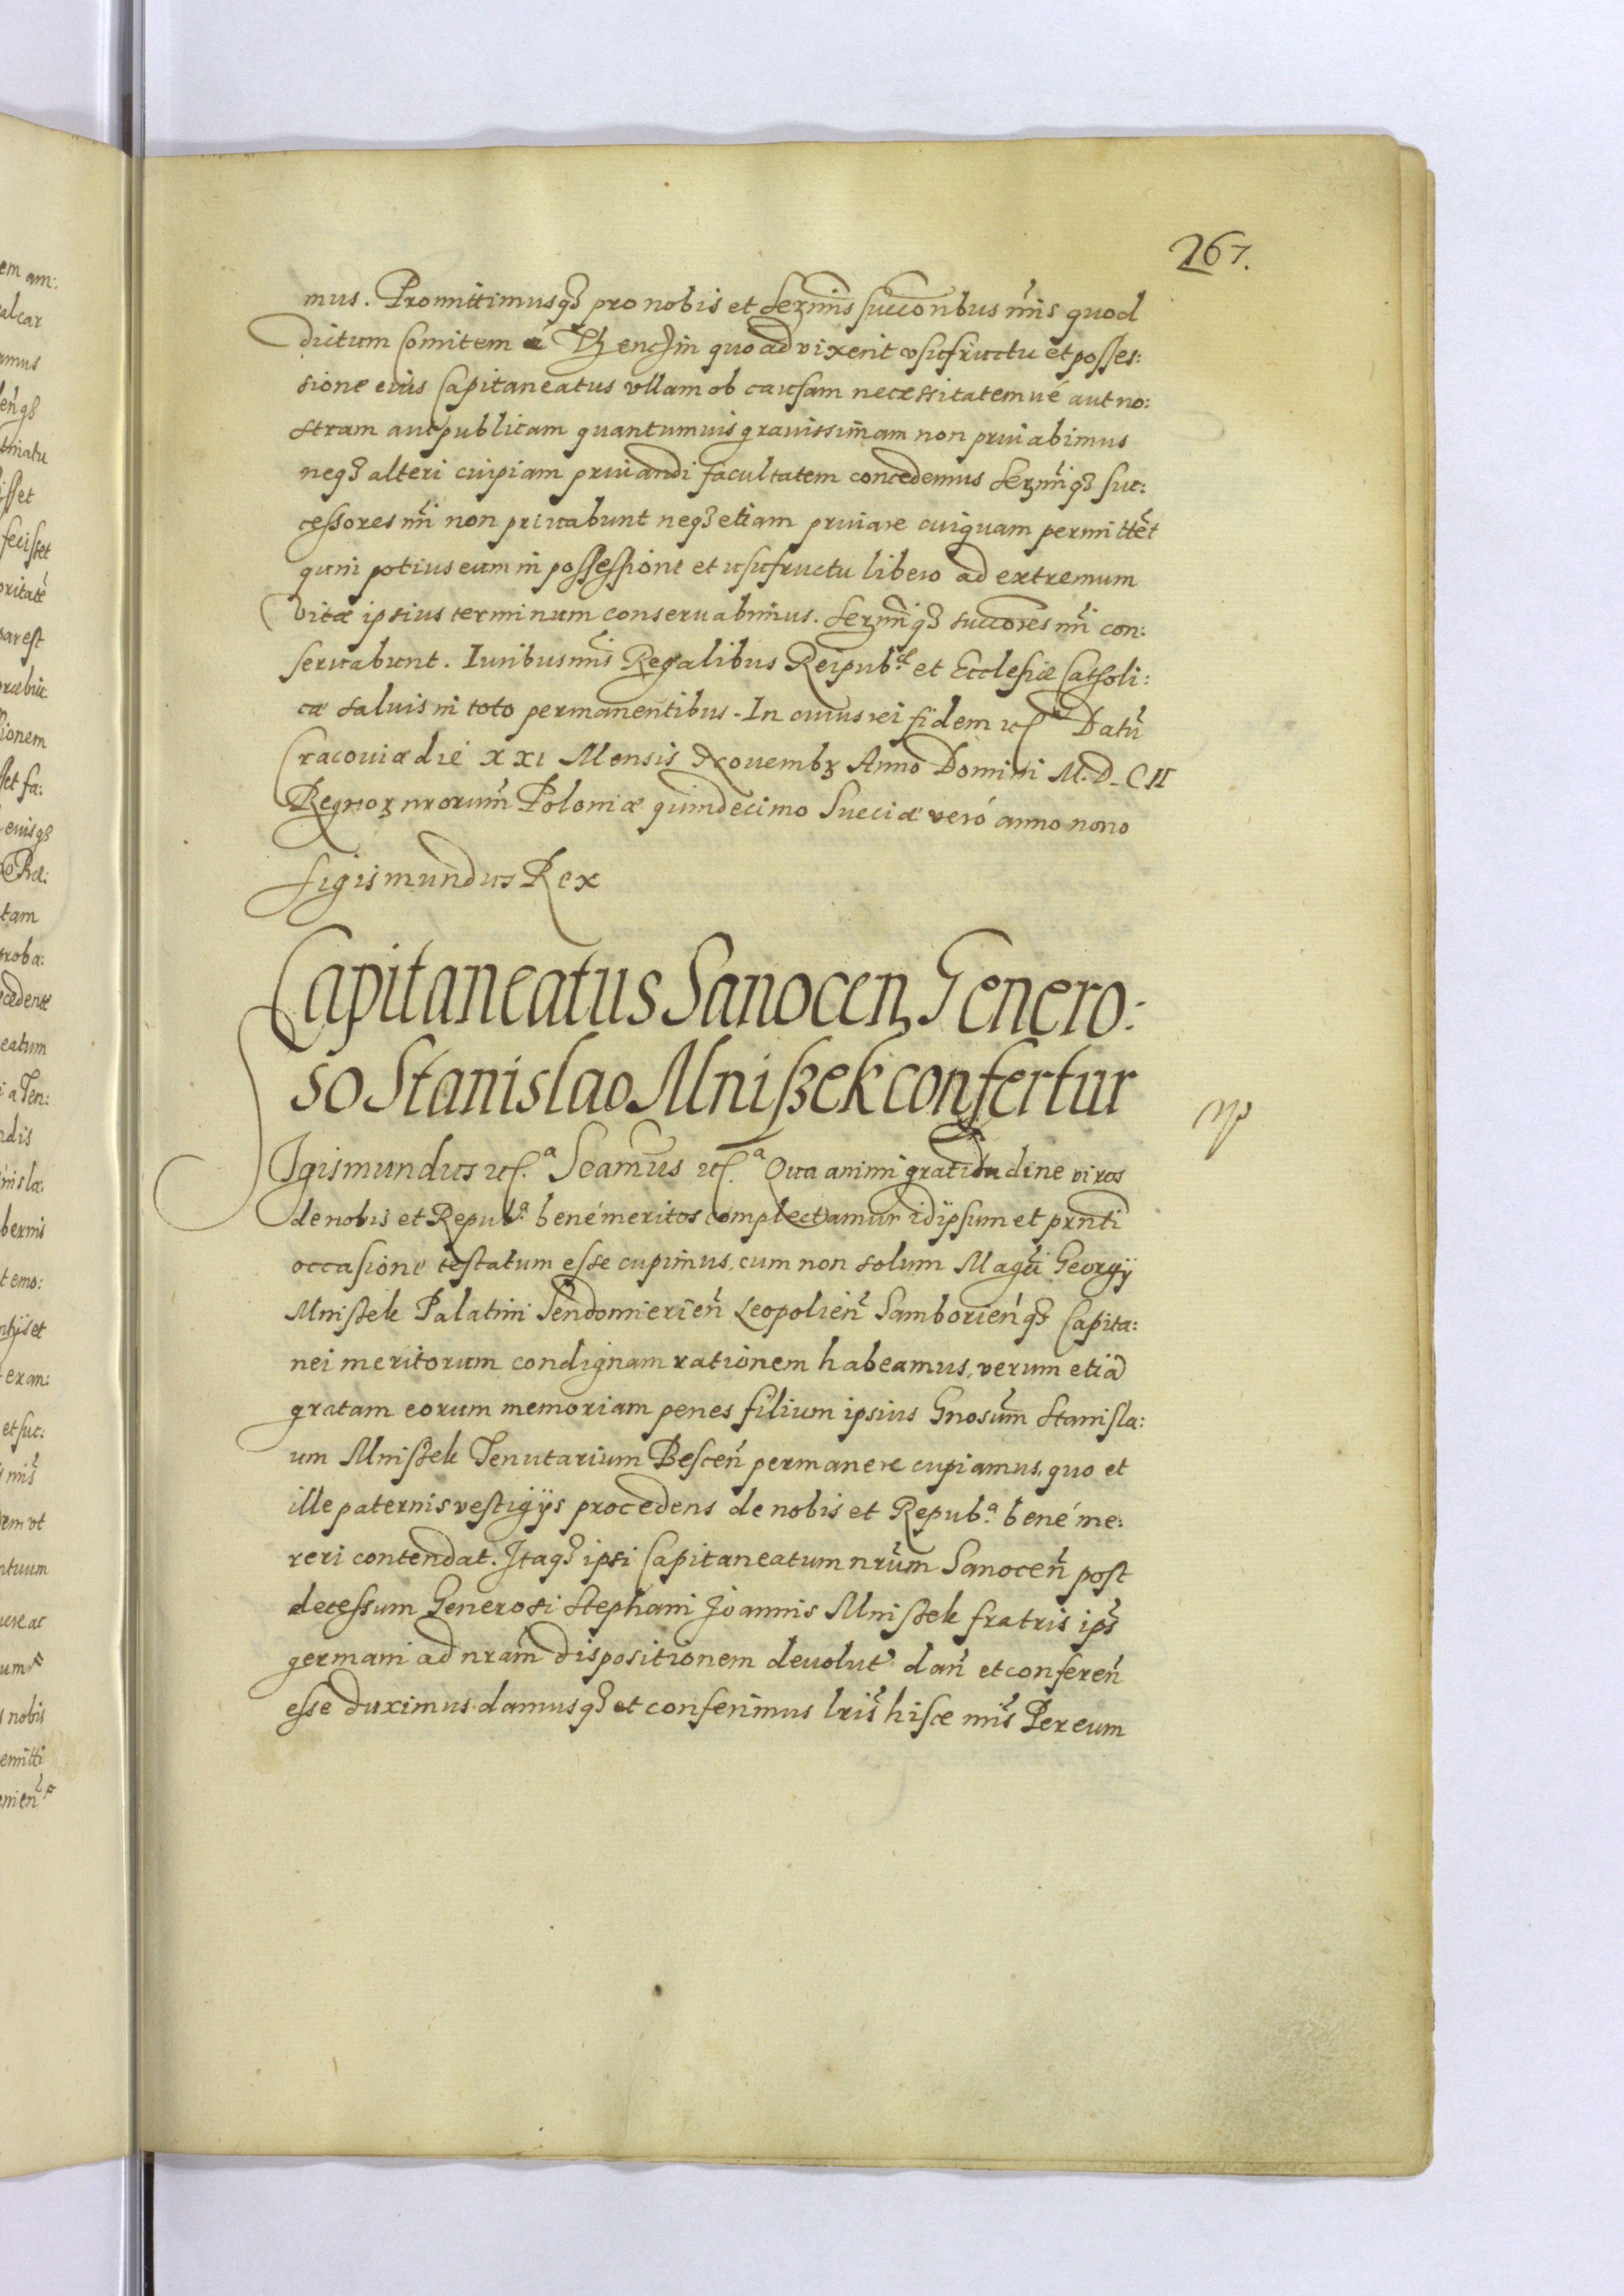 267.
mus. Promittimusqꝫ pro nobis et Serꝫmis succoribus nris quod
dictum Comitem á Thenczin quo ad vixerit vsufructu et posses:
sione eius Capitaneatus vllam ob causam necessitatemué aut no:
stram aut publicam quantumuis grauissimam non priuabimus
neqꝫ alteri cuipiam priuandi facultatem concedemus Serꝫmiqꝫ suc:
cessores nri non priuabunt neqꝫ etiam priuare cuiquam permittet
quin potius eum in possessione et usufructu libero ad extremum
vitæ ipsius terminum conseruabimus. Serꝫmiqꝫ succores nri con:
seruabunt. Iuribus nris Regalibus Reipub. et Ecclesiæ Catholi:
cæ saluis in toto permanentibus. In cuius rei fidem etc. Datu
Cracouiæ die XXI Mensis Nouembꝫ Anno Domini M.D.CII
Regnoꝝ nrorum Poloniæ quindecimo Sueciæ veró anno nono
Sigismundus Rex
Capitaneatus Sanocen Genero:
so Stanislao Mnißek confertur
Sigismundus etc.ª Scamus etc.ª Qua animi gratitudine viros
de nobis et Repub.ª bené meritos complectamur idipsum et prnti
occasione testatum esse cupimus, cum non solum Magci Georgij
Mnißek Palatini Sendomirien Leopolien Samborienqꝫ Capita:
nei meritorum condignam rationem habeamus, verum etia
gratam eorum memoriam penes filium ipsius Gnosum Stanisla:
um Mnißek Tenutarium Bescen permanere cupiamus, quo et
ille paternis vestigijs procedens de nobis et Repub.ª bené me:
reri contendat. Itaqꝫ ipsi Capitaneatum nrum Sanocen post
decessum Generosi Stephani Joannis Mnißek fratris ips
germani ad nram dispositionem deuolut dan et conferen
esse duximus damusqꝫ et conferimus lris hisce nris Per eum